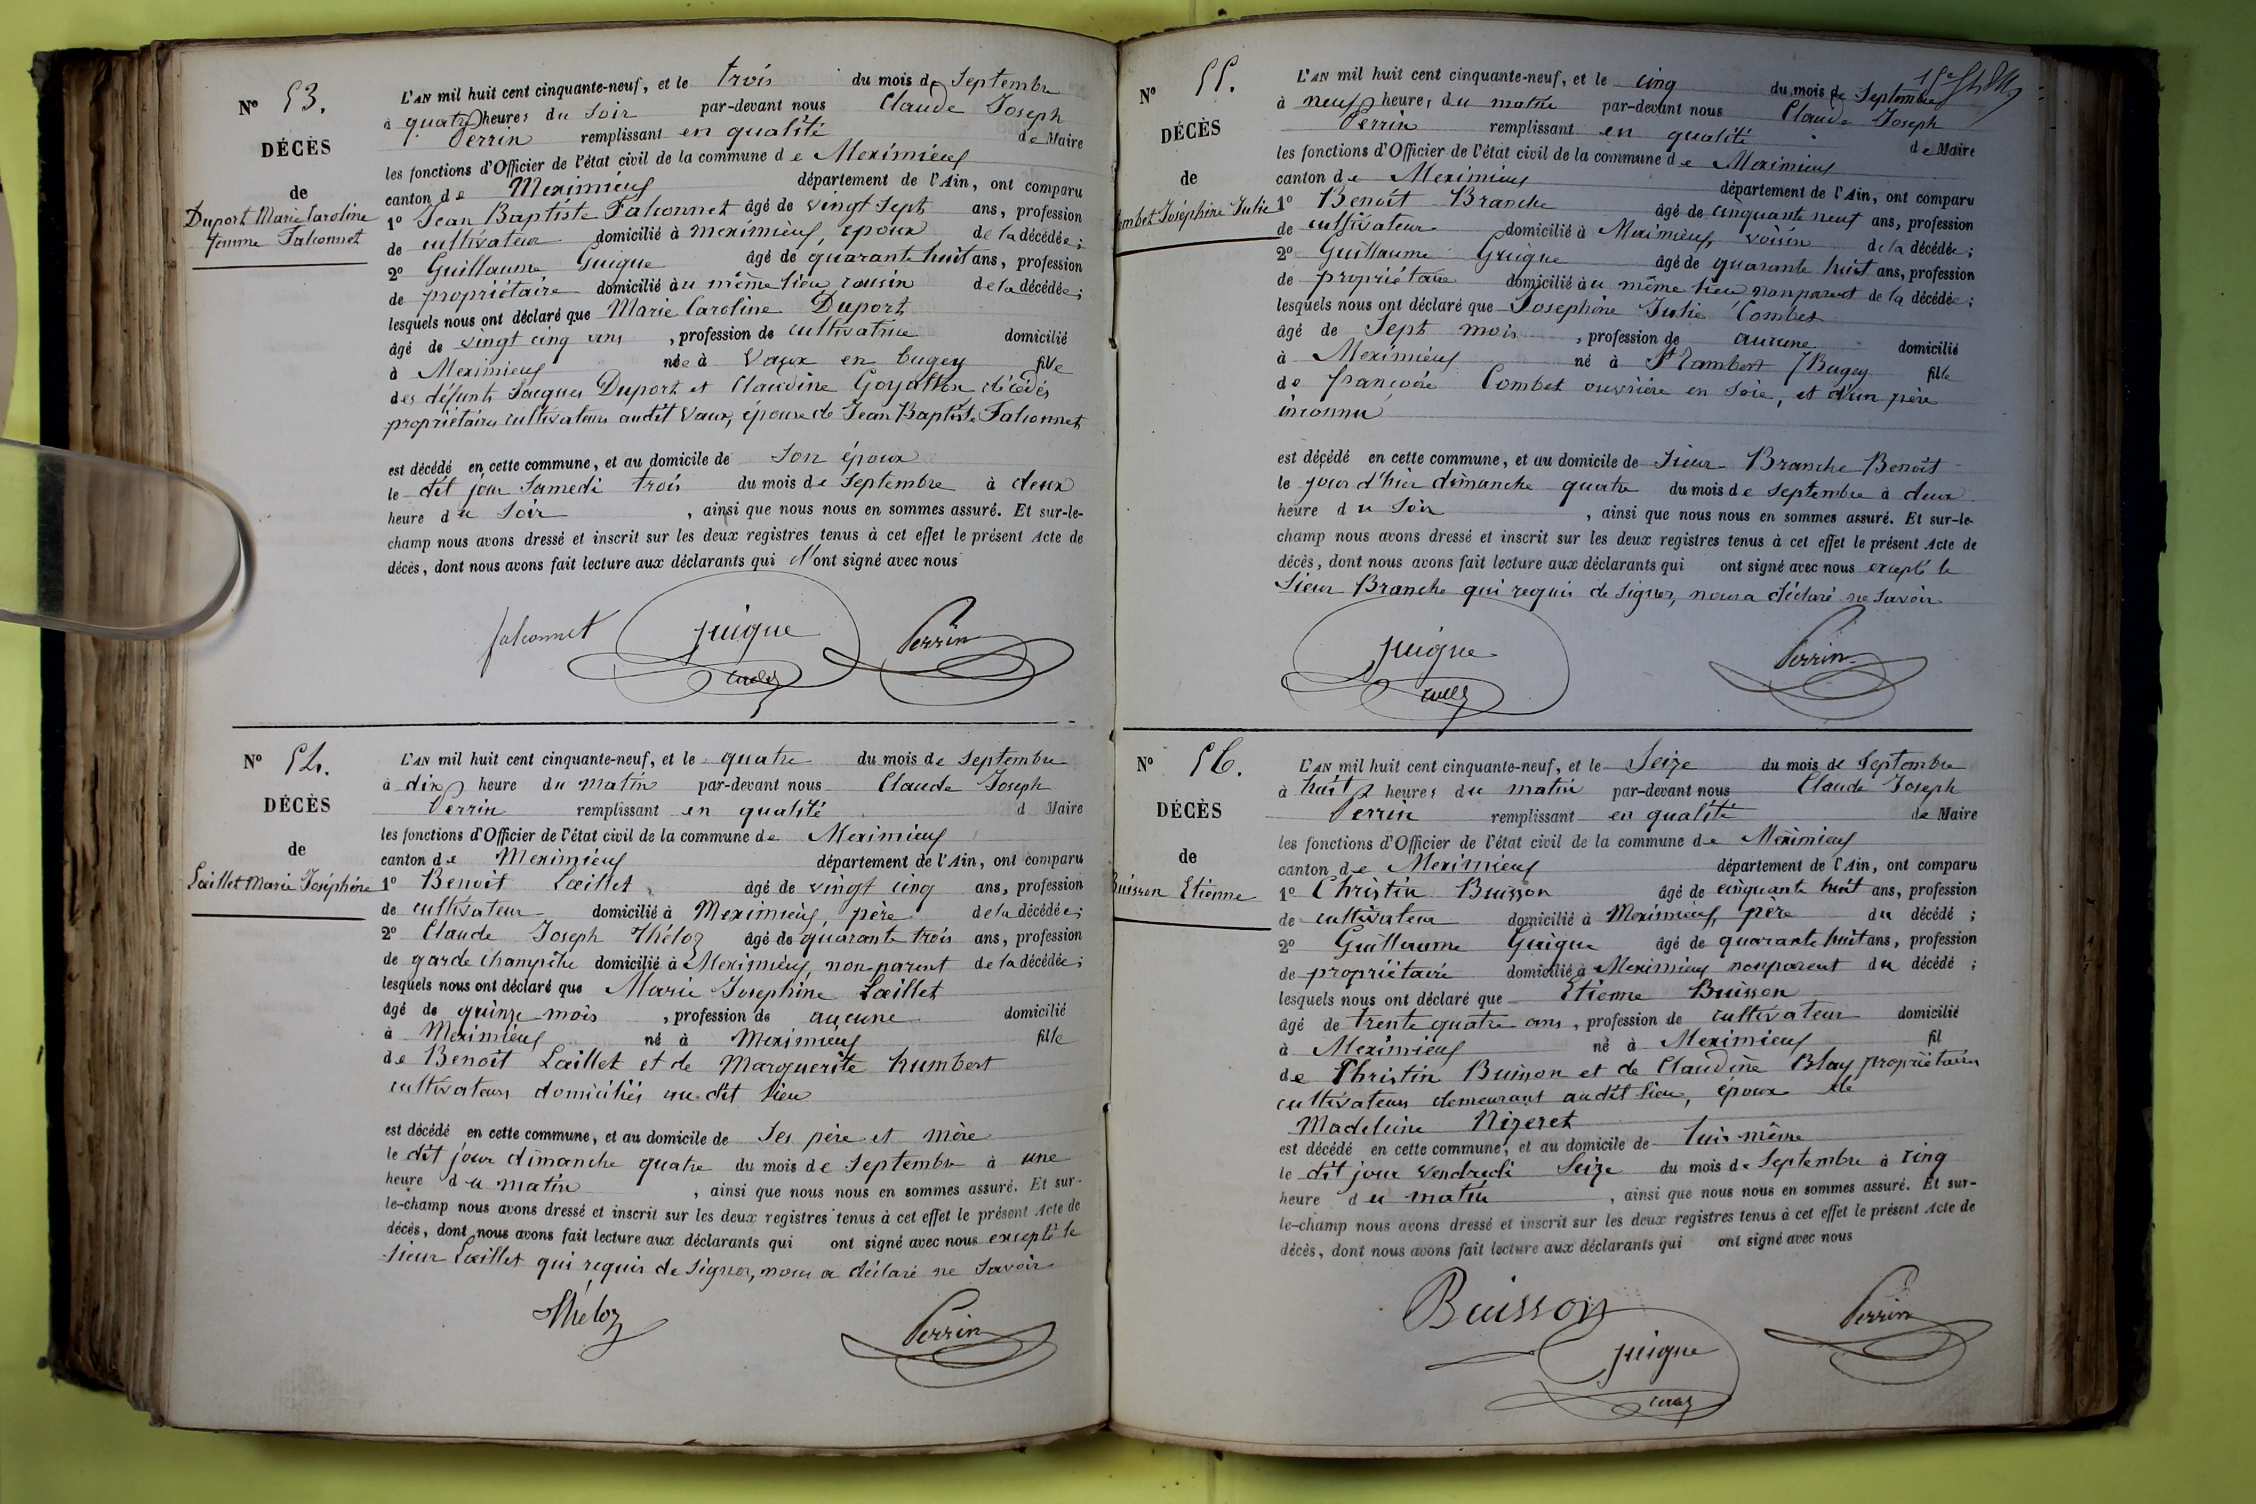 N° 53.
DÉCÈS
de
Duport Marie Caroline
femme Falconnet
L'AN mil huit cent cinquante-neuf, et le trois du mois de Septembre
à quatre heures du Soir par-devant nous Claude Joseph
Perrin remplissant en qualité de Maire
les fonctions d'Officier de l'état civil de la commune de Meximieux
canton de Meximieux département de l'Ain, ont comparu
1° Jean Baptiste Falconnet âgé de vingt Sept ans, profession
de cultivateur domicilié à Meximieux, époux de la décédée;
2° Guillaume Guigue âgé de quarante huit ans, profession
de propriétaire domicilié au même lieu, cousin de la décédée;
lesquels nous ont déclaré que Marie Caroline Duport
âgé de vingt cinq ans, profession de cultivatrice domicilié
à Meximieux née à Vaux en bugey fille
des défunts Jacques Duport et Claudine Goyatton décédés
propriétaires cultivateurs audit Vaux, épouse de Jean Baptiste Falconnet
est décédé en cette commune, et au domicile de Son époux
le dit jour Samedi trois du mois de Septembre à deux
heure du Soir, ainsi que nous nous en sommes assuré. Et sur-le-
champ nous avons dressé et inscrit sur les deux registres tenus à cet effet le présent Acte de
décès, dont nous avons fait lecture aux déclarants qui ont signé avec nous
falconnet Guigue Perrin
N° 54.
DÉCÈS
de
Lœillet Marie Joséphine
L'AN mil huit cent cinquante-neuf, et le quatre du mois de Septembre
à dix heure du matin par-devant nous Claude Joseph
Perrin remplissant en qualité d Maire
les fonctions d'Officier de l'état civil de la commune de Meximieux
canton de Meximieux département de l'Ain, ont comparu
1° Benoit Lœillet âgé de vingt cinq ans, profession
de cultivateur domicilié à Meximieux, père de la décédée;
2° Claude Joseph Théloz âgé de quarante trois ans, profession
de garde champêtre domicilié à Meximieux, non parent de la décédée;
lesquels nous ont déclaré que Marie Josephine Lœillet
âgé de quinze mois, profession de aucune domicilié
à Meximieux né à Meximieux fille
de Benoit Lœillet et de Marguerite humbert
cultivateurs domiciliés au dit lieu
est décédé en cette commune, et au domicile de Ses père et mère
le dit jour dimanche quatre du mois de Septembre à une
heure du matin, ainsi que nous nous en sommes assuré. Et sur-
le-champ nous avons dressé et inscrit sur les deux registres tenus à cet effet le présent Acte de
décès, dont nous avons fait lecture aux déclarants qui ont signé avec nous excepté le
Sieur Lœillet qui requis de Signer, nous a déclaré ne Savoir
Théloz Perrin
N° 55.
DÉCÈS
de
ombet Joséphine Julie
L'AN mil huit cent cinquante-neuf, et le cinq du mois de Septembre
à neuf heures du matin par-devant nous Claude Joseph
Perrin remplissant en qualité de Maire
les fonctions d'Officier de l'état civil de la commune de Meximieux
canton de Meximieux département de l'Ain, ont comparu
1° Benoît Branche âgé de cinquante neuf ans, profession
de cultivateur domicilié à Meximieux, voisin de la décédée;
2° Guillaume Guigue âgé de quarante huit ans, profession
de propriétaire domicilié au même lieu non parent de la décédée;
lesquels nous ont déclaré que Josephine Julie Combet
âgé de Sept mois, profession de aucune domicilié
à Meximieux né à St Rambert / Bugey fille
de françoise Combet ouvrière en Soie, et d'un père
inconnu
est décédé en cette commune, et au domicile de Sieur Branche Benoît
le jour d'hier dimanche quatre du mois de Septembre à deux
heure du Soir, ainsi que nous nous en sommes assuré. Et sur-le-
champ nous avons dressé et inscrit sur les deux registres tenus à cet effet le présent Acte de
décès, dont nous avons fait lecture aux déclarants qui ont signé avec nous excepté le
Sieur Branche qui requis de Signer, nous a déclaré ne Savoir
Guigue Perrin
N° 56.
DÉCÈS
de
Buisson Etienne
L'AN mil huit cent cinquante-neuf, et le Seize du mois de Septembre
à huit heures du matin par-devant nous Claude Joseph
Perrin remplissant en qualité de Maire
les fonctions d'Officier de l'état civil de la commune de Meximieux
canton de Meximieux département de l'Ain, ont comparu
1° Christin Buisson âgé de cinquante huit ans, profession
de cultivateur domicilié à Meximieux, père du décédé;
2° Guillaume Guigue âgé de quarante huit ans, profession
de propriétaire domicilié à Meximieux non parent du décédé;
lesquels nous ont déclaré que Etienne Buisson
âgé de trente quatre ans, profession de cultivateur domicilié
à Meximieux né à Meximieux fil
de Christin Buisson et de Claudine Blay propriétaires
cultivateurs demeurant audit lieu, époux de
Madeleine Nizeret
est décédé en cette commune, et au domicile de lui-même
le dit jour Vendredi Seize du mois de Septembre à cinq
heure du matin, ainsi que nous nous en sommes assuré. Et sur-
le-champ nous avons dressé et inscrit sur les deux registres tenus à cet effet le présent Acte de
décès, dont nous avons fait lecture aux déclarants qui ont signé avec nous
Buisson Perrin
Guigue